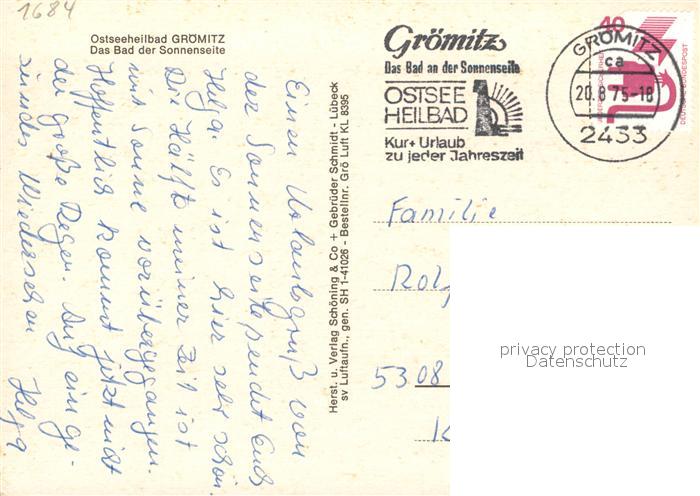 1684
Ostseeheilbad GRÖMITZ
Das Bad der Sonnenseite
Einen Urlaubsgruß von
der Sonnenseite sendet Euch
Helga. Es ist hier sehr schön.
Die Hälfte meiner Zeit ist
mit Sonne vorübergegangen.
Hoffentlich kommt jetzt nicht
der große Regen. Auf ein ge-
sundes Wiedersehen Helga
Herst. u. Verlag Schöning & Co + Gebrüder Schmidt - Lübeck
sv Luftaufn., gen. SH 1-41026 - Bestellnr. Grö Luft KL 8395
Grömitz
Das Bad an der Sonnenseite
OSTSEE
HEILBAD
Kur+ Urlaub
zu jeder Jahreszeit
GRÖMITZ
ca
20.8.75-18
2433
40
DEUTSCHE BUNDESPOST
Familie
Rol
5308
privacy protection
Datenschutz